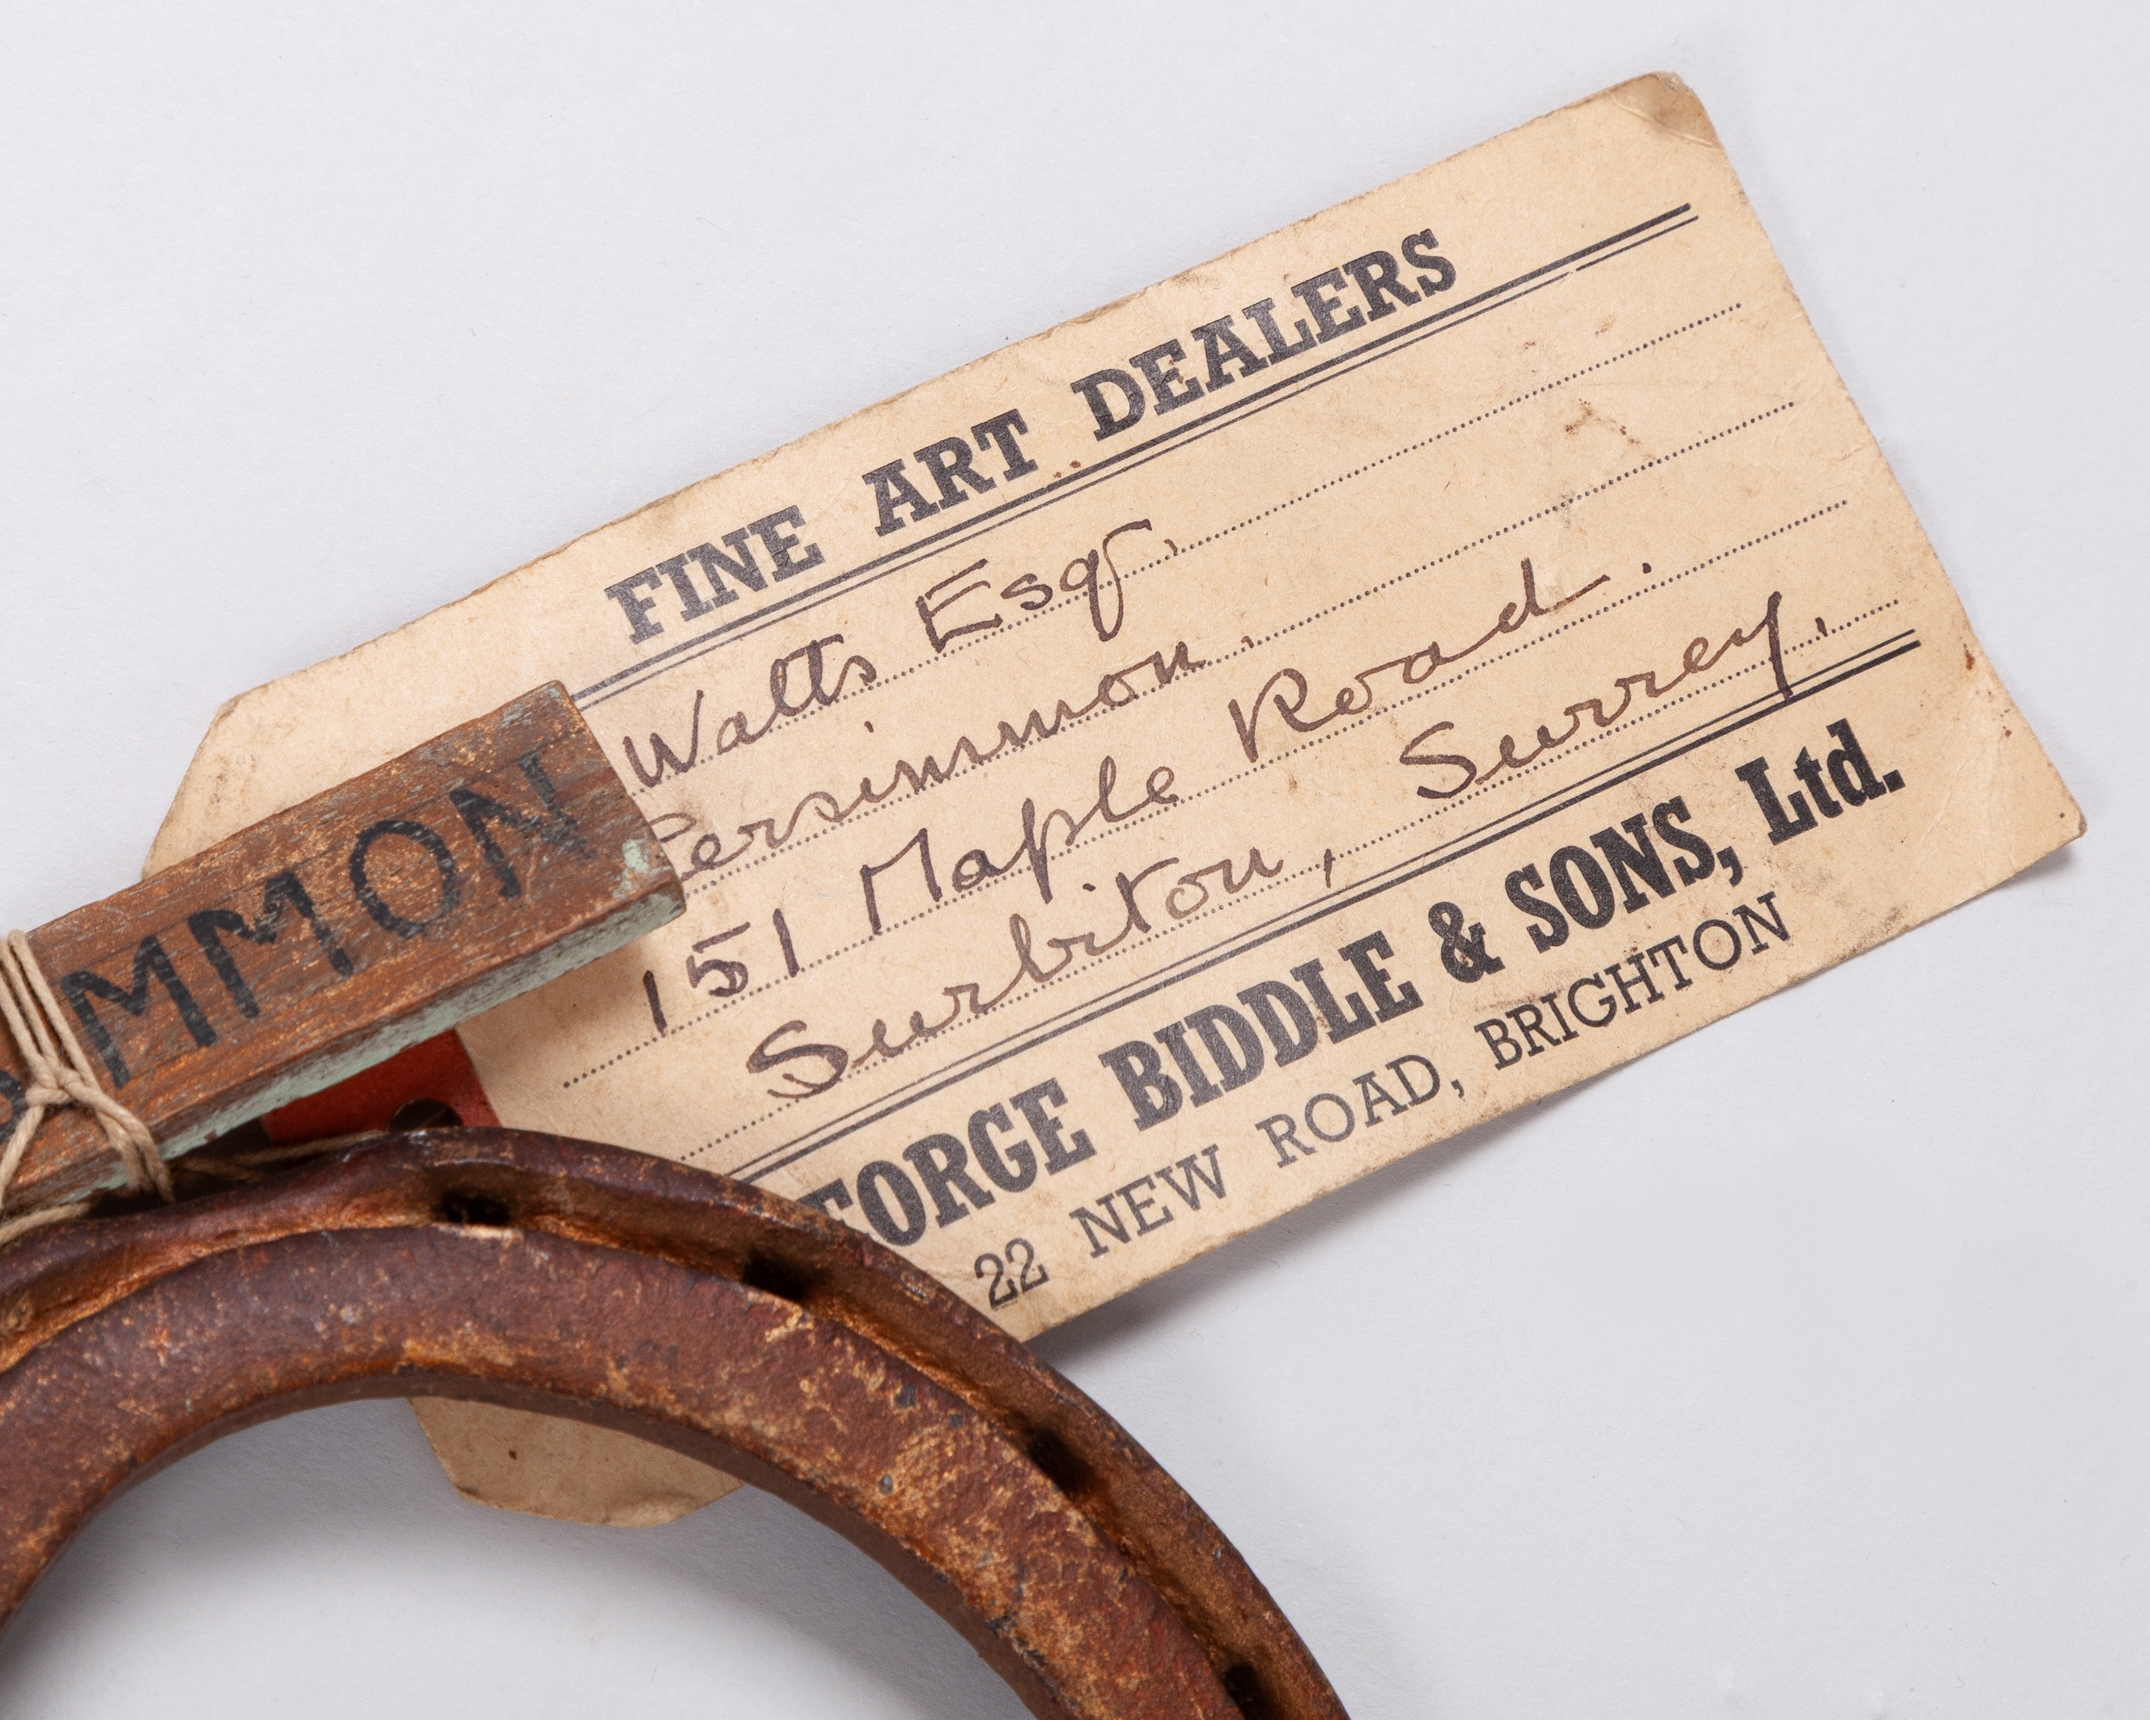 FINE ART DEALERS
Watts Esqr.
Persimmon.
151 Maple Road.
Surbiton, Surrey.
EORGE BIDDLE & SONS, Ltd.
22 NEW ROAD, BRIGHTON
MMON